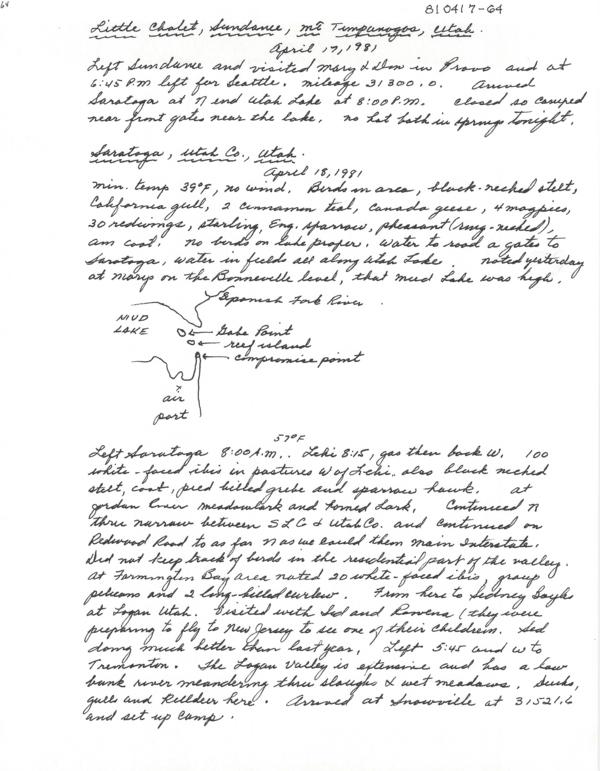 64
810417-64
Little Chalet, Sundance, Mt Timpanogos, Utah.
April 17, 1981
Left Sundance and visited Mary & Don in Provo and at
6:45 P.M left for Seattle. mileage 31300.0. Arrived
Saratoga at N end Utah Lake at 8:00 P.M. closed so camped
near front gates near the lake. no hot bath in springs tonight.
Saratoga, Utah Co., Utah.
April 18, 1981
min. temp 39°F, no wind. Birds in area, black-necked stilt,
California gull, 2 cinnamon teal, Canada geese, 4 magpies,
30 redwings, starling, Eng. sparrow, pheasant (ring-necked),
am coot. no birds on lake proper. water to road & gates to
Saratoga, water in fields all along Utah Lake. noted yesterday
at Marys on the Bonneville level, that mud Lake was high.
Spanish Fork River
MUD
LAKE
Gobe Point
reef island
compromise point
air
port
57°F
Left Saratoga 8:00 A.M.. Lehi 8:15, gas then back W. 100
white-faced ibis in pastures W of Lehi.. also black necked
stilt, coot, pied billed grebe and sparrow hawk. at
Jordan River meadowlark and horned lark. Continued N
thru narrow between SLC & Utah Co. and continued on
Redwood Road to as far N as we could then main Interstate.
Did not keep track of birds in the residential part of the valley.
at Farmington Bay area noted 20 white-faced ibis, group
pelicans and 2 long-billed curlew. From here to Sidney
at Logan Utah. Visited with Sid and Rowena (they were
preparing to fly to New Jersey to see one of their children. Sid
doing much better than last year. Left 5:45 and W to
Tremonton. The Logan Valley is extensive and has a low
bank river meandering thru sloughs & wet meadows. Ducks,
gulls and Killdeer here. Arrived at Snowville at 31521.6
and set up camp.